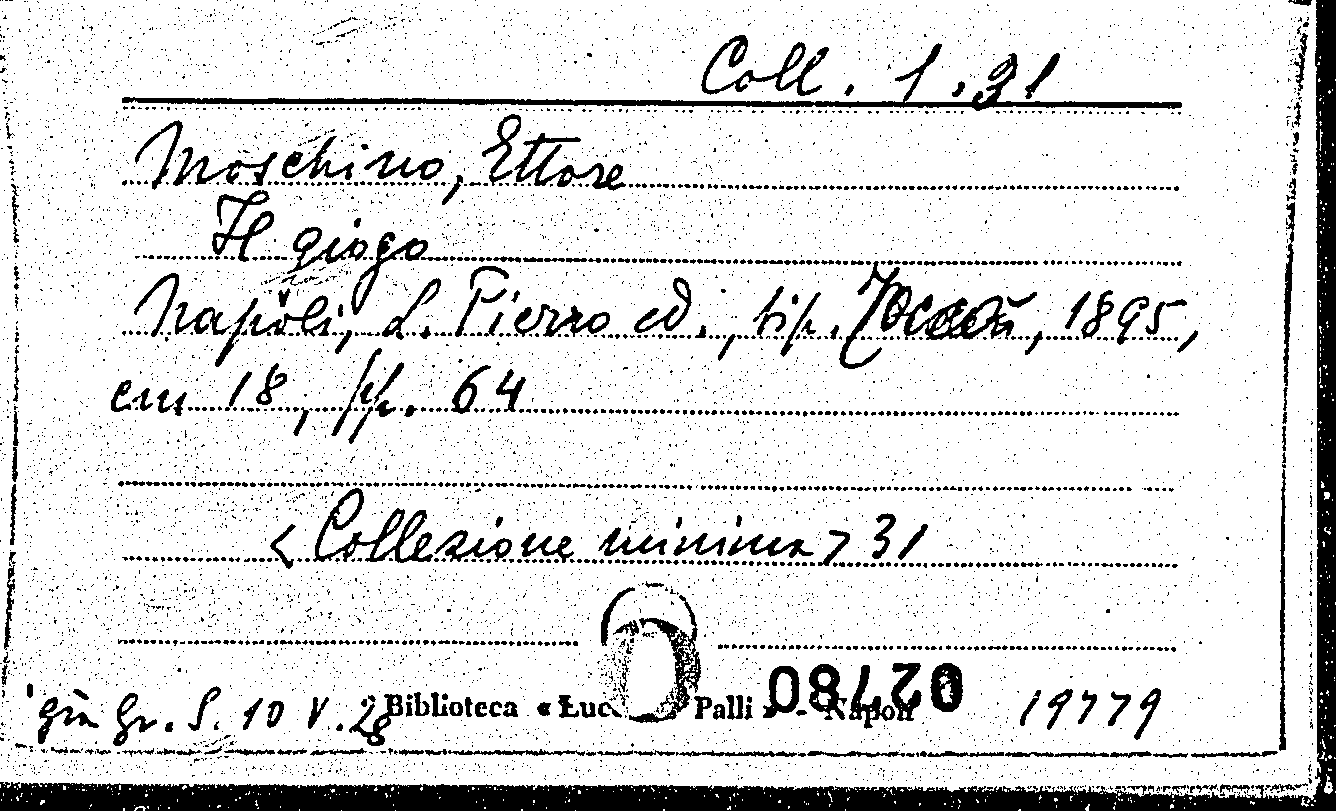 Coll. 1.31
Moschino, Ettore
Il giogo
Napoli, L. Pierro ed., tip. 1895,
cm 18, pp. 64
<Collezione minima> 31
già Gr. S. 10 V. 28 Biblioteca « Palli » - Napoli 19779